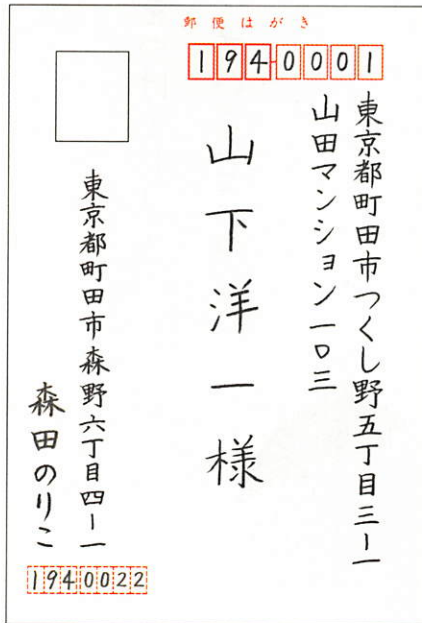 郵便はがき
194-0001
東京都町田市つくし野五丁目三ー一
山田マンション一〇三
山下洋一様
東京都町田市森野六丁目四ー一
森田のりこ
1940022